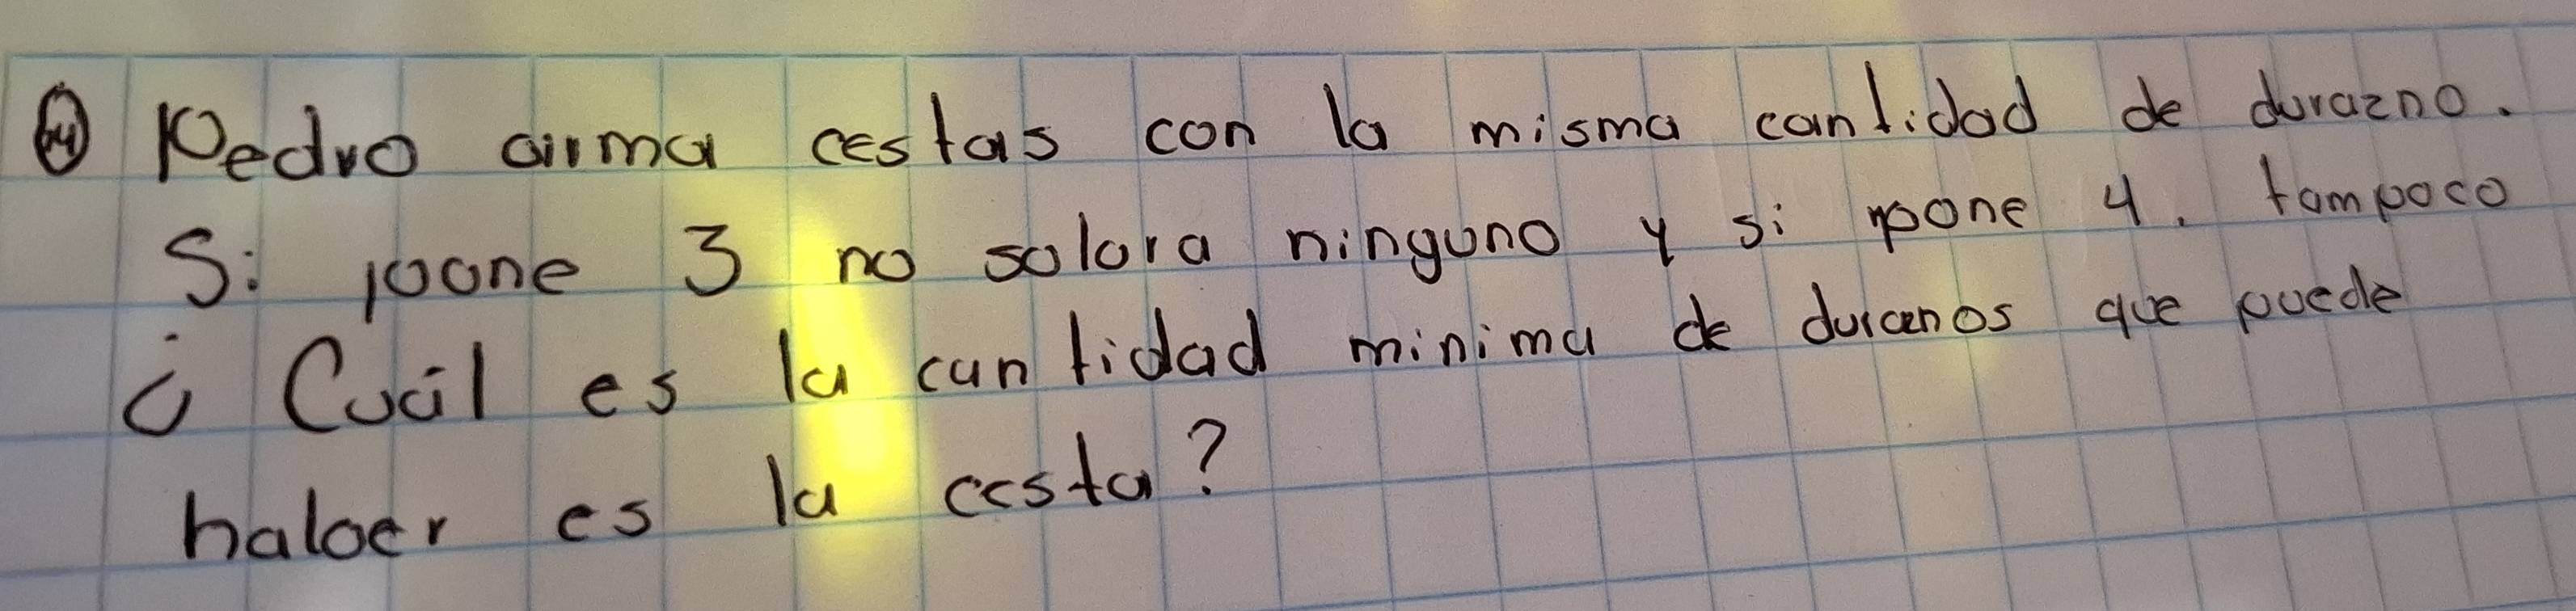 14 Pedro arma cestas con la misma cantidad de durazno.
Si pone 3 no sobra ninguno y si pone 4. tampoco
¿Cuál es la cantidad minima de duranos que puede
haber es la cesta?